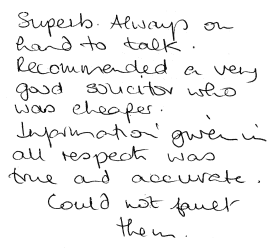 Superb. Always on
hand to talk.
Recommended a very
good solicitor who
was cheaper.
Information given in
all respect was
true and accurate.
Could not fault
them.